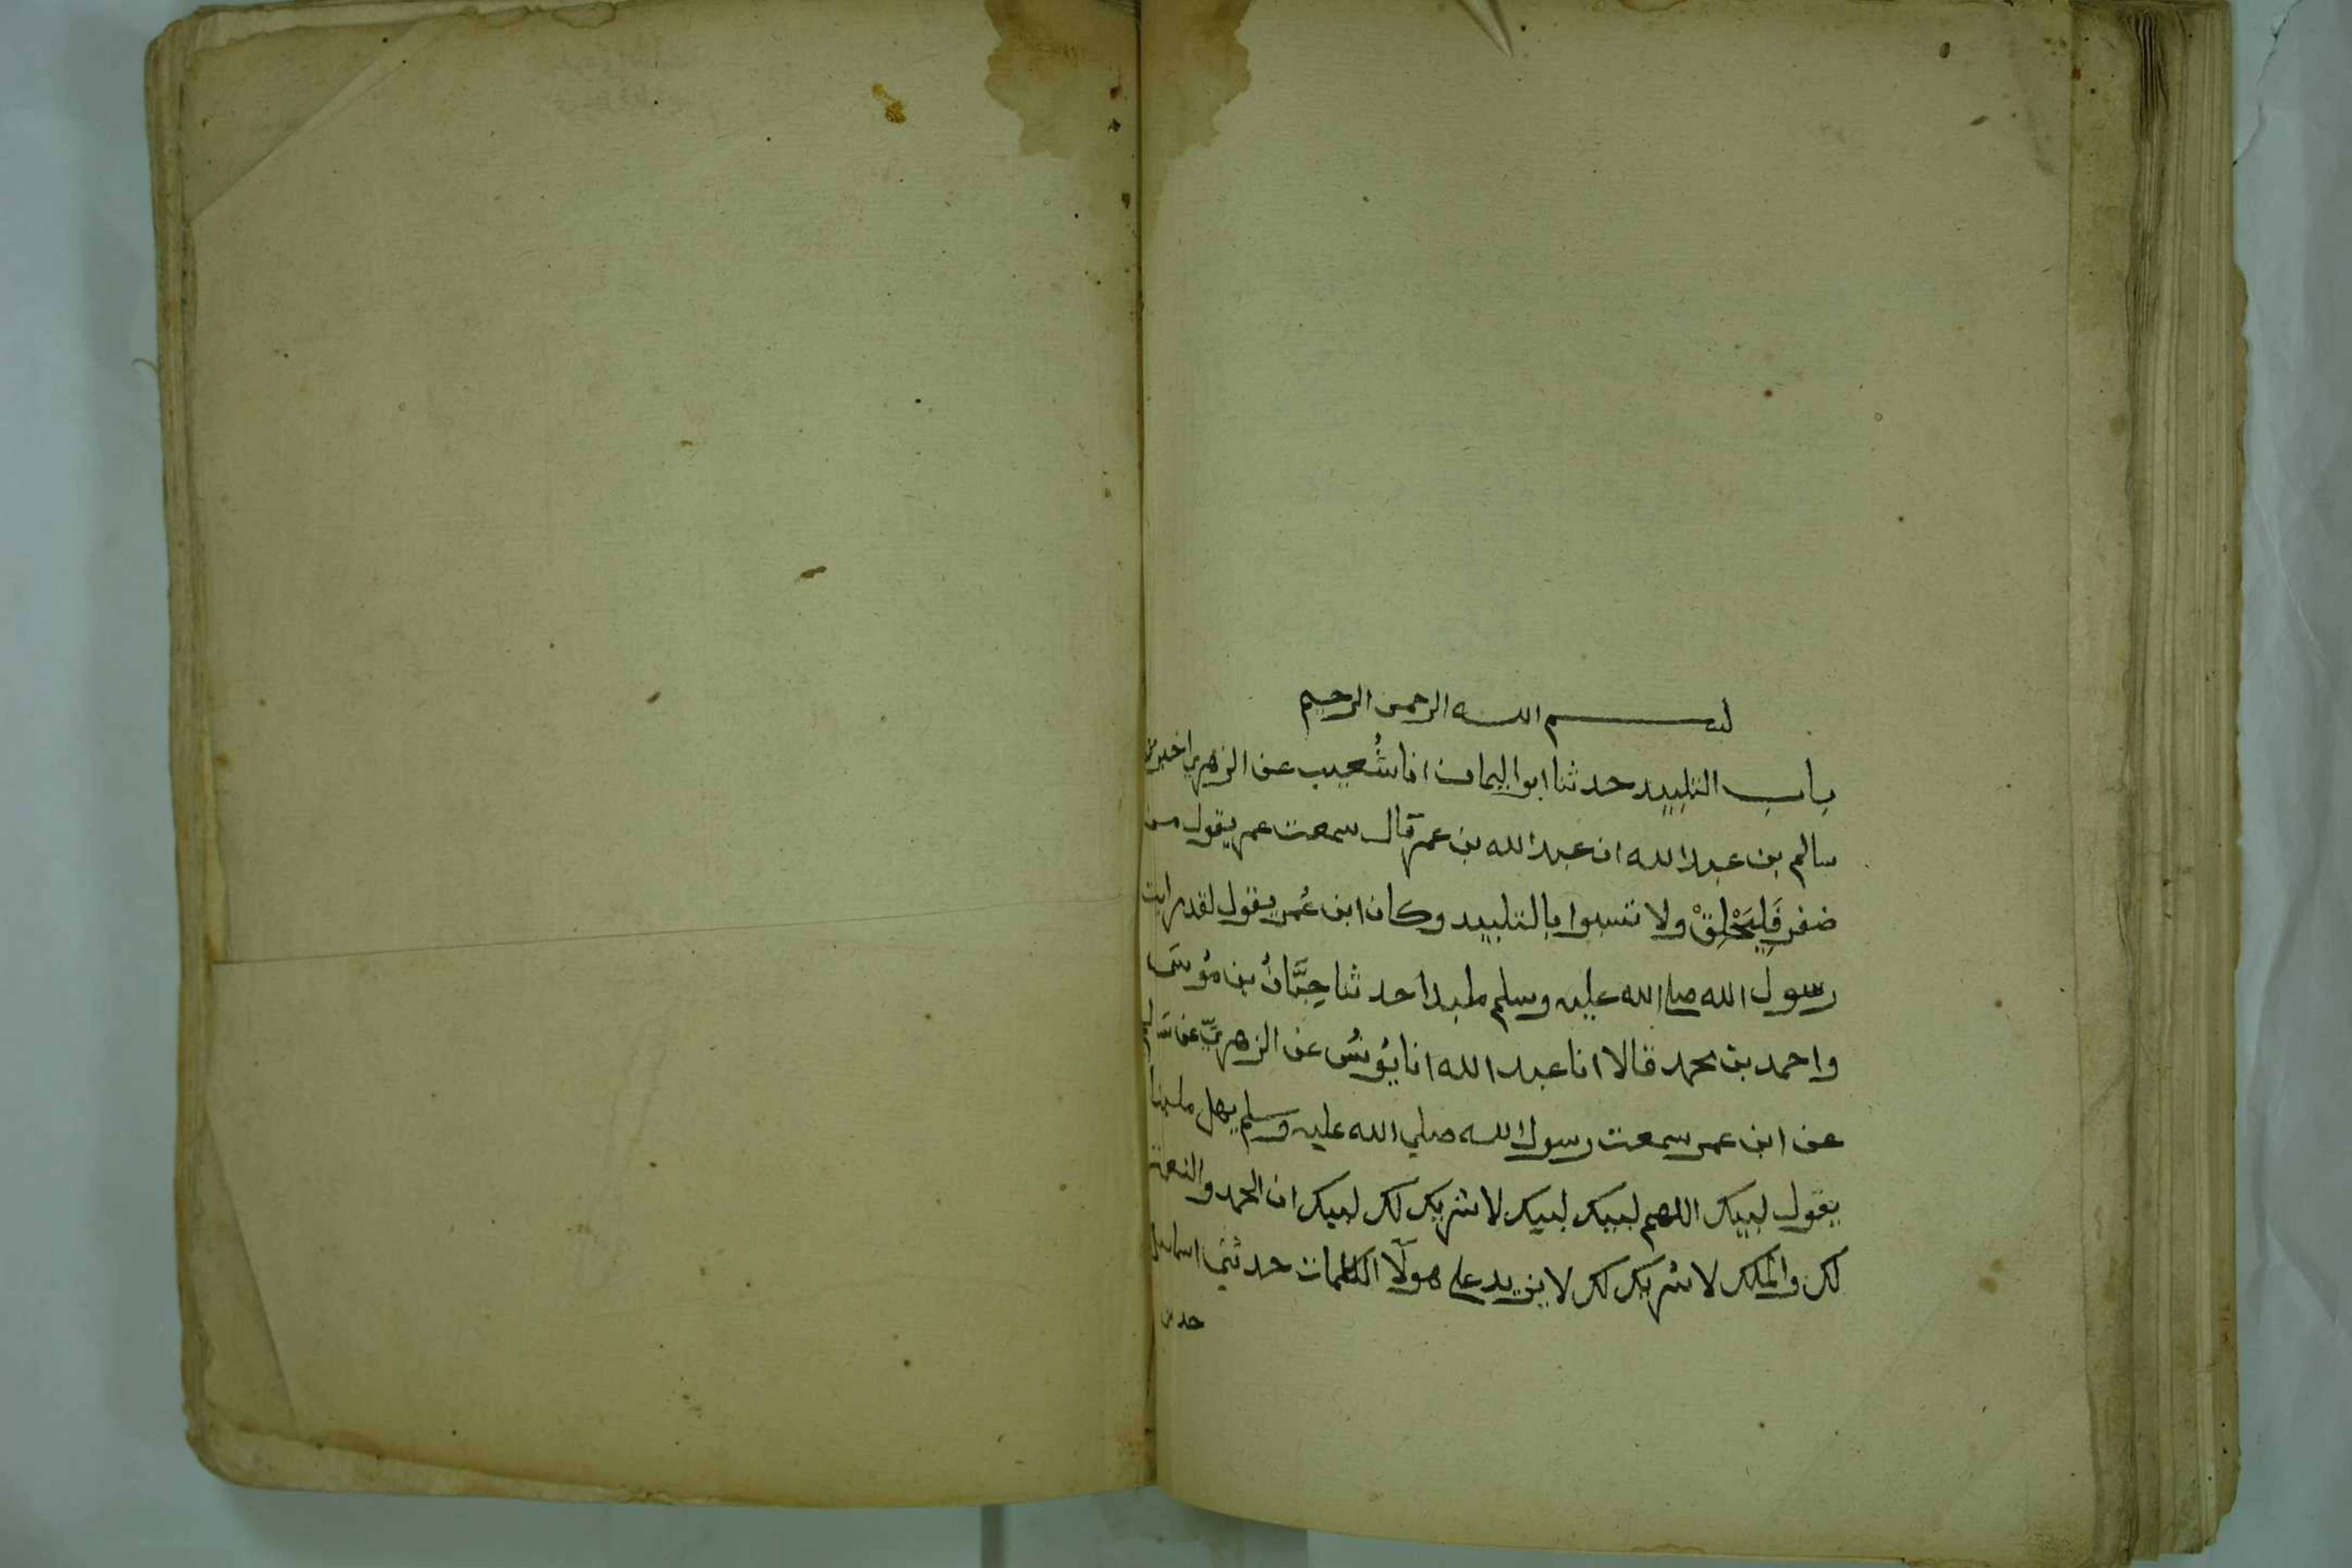 بسم الله الرحمن الرحيم
باب التلبيد حدثنا ابو اليمان انا شُعيب عن الزهري اخبرني
سالم بن عبد الله ان عبد الله بن عمر قال سمعت عمر يقول من
ضفر فَلْيَحْلِقْ ولا تشبهوا بالتلبيد وكان ابن عُمر يقول لقد رايت
رسول الله صلى الله عليه وسلم ملبدا حدثنا حِبَّانُ بن مُوسَى
واحمد بن محمد قالا انا عبد الله انا يُونسُ عن الزهريّ عن سالم
عن ابن عمر سمعت رسول الله صلي الله عليه وسلم يهل ملبدا
يقول لبيك اللهم لبيك لبيك لا شريك لك لبيك ان الحمد والنعمة
لك والمُلك لا شريك لك لا يزيد على هولآ الكلمات حدثني اسماعيل